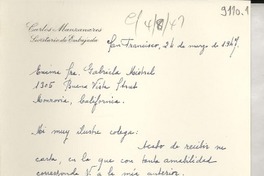 9110.1
C/ 4/8/47
Carlos Manzanares
Secretario de Embajada
San Francisco, 26 de marzo de 1947.
Excma Sra. Gabriela Mistral
1305 Buena Vista Street
Monrovia, California.
Mi muy ilustre colega:
Acabo de recibir su
carta, en la que con tanta amabilidad
corresponde V. a la mía anterior.